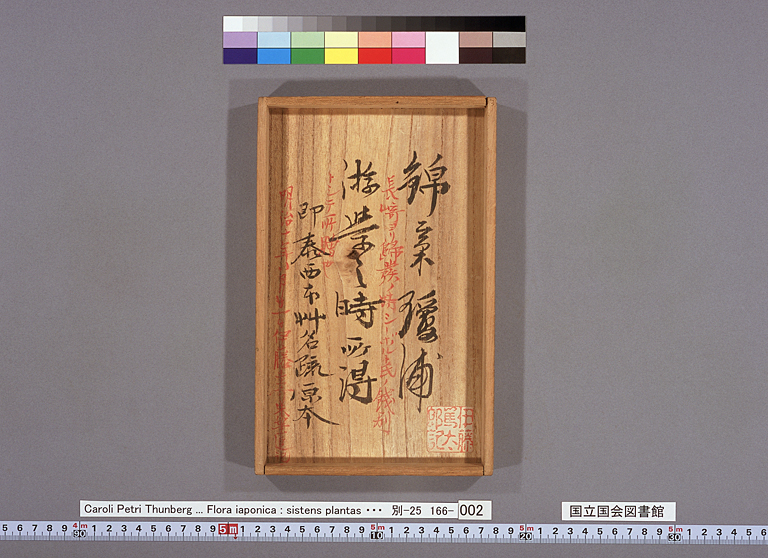 錦窠瓊浦
長崎ヨリ帰
ノ時シー
氏ノ餞別
游学之時所得
トシテ所贈也
即泰西本艸名疏原本
明治十
伊藤
伊藤
篤太
郎記
Caroli Petri Thunberg ... Flora iaponica : sistens plantas ･･･ 別-25 166- 002
国立国会図書館
5 6 7 8 9 4m 90 1 2 3 4 5 6 7 8 9 5m 1 2 3 4 5 6 7 8 9 5m 10 1 2 3 4 5 6 7 8 9 5m 20 1 2 3 4 5 6 7 8 9 5m 30 1 2 3 4 5 6